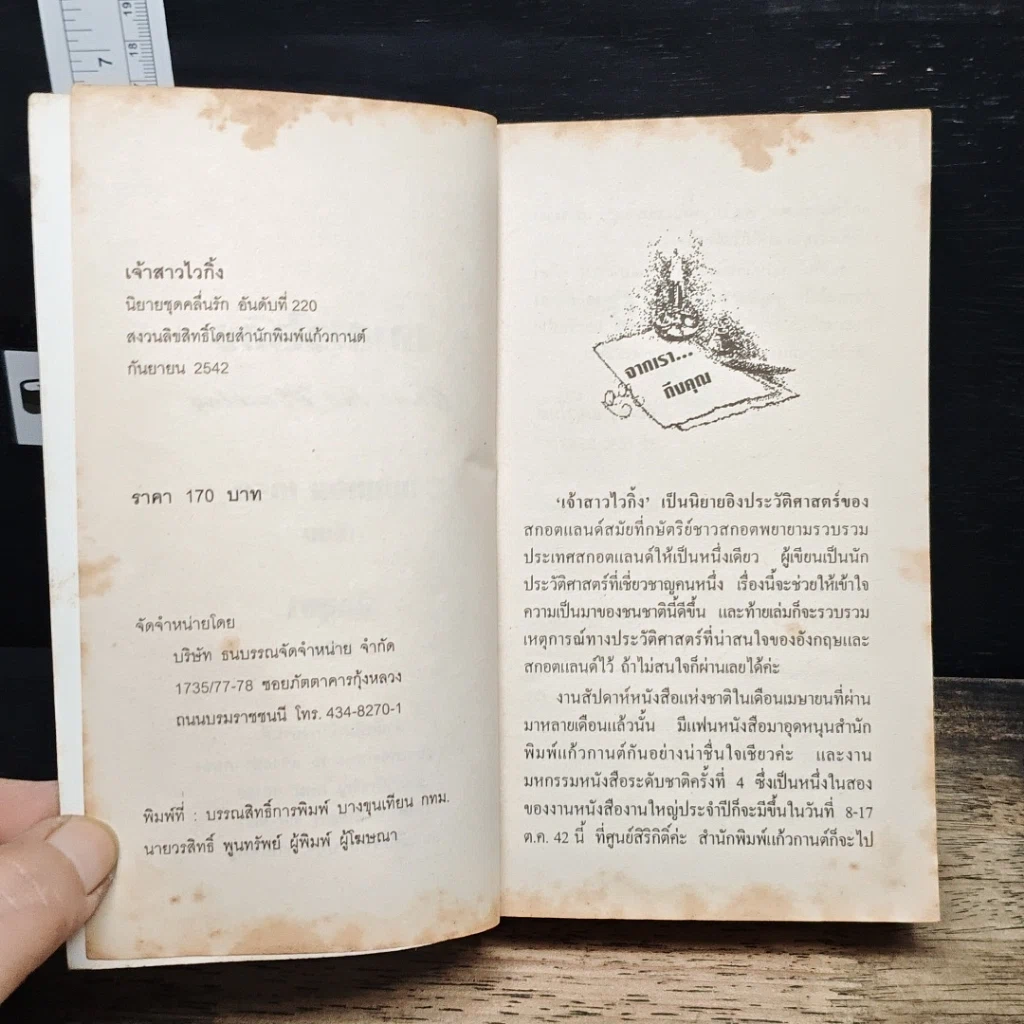 7
18
19
เจ้าสาวไวกิ้ง
นิยายชุดคลื่นรัก อันดับที่ 220
สงวนลิขสิทธิ์โดยสำนักพิมพ์แก้วกานต์
กันยายน 2542
ราคา 170 บาท
จัดจำหน่ายโดย
บริษัท ธนบรรณจัดจำหน่าย จำกัด
1735/77-78 ซอยภัตตาคารกุ้งหลวง
ถนนบรมราชชนนี โทร. 434-8270-1
พิมพ์ที่ : บรรณสิทธิ์การพิมพ์ บางขุนเทียน กทม.
นายวรสิทธิ์ พูนทรัพย์ ผู้พิมพ์ ผู้โฆษณา
จากเรา...
ถึงคุณ
'เจ้าสาวไวกิ้ง' เป็นนิยายอิงประวัติศาสตร์ของ
สกอตแลนด์สมัยที่กษัตริย์ชาวสกอตพยายามรวบรวม
ประเทศสกอตแลนด์ให้เป็นหนึ่งเดียว ผู้เขียนเป็นนัก
ประวัติศาสตร์ที่เชี่ยวชาญคนหนึ่ง เรื่องนี้จะช่วยให้เข้าใจ
ความเป็นมาของชนชาตินี้ดีขึ้น และท้ายเล่มก็จะรวบรวม
เหตุการณ์ทางประวัติศาสตร์ที่น่าสนใจของอังกฤษและ
สกอตแลนด์ไว้ ถ้าไม่สนใจก็ผ่านเลยได้ค่ะ
งานสัปดาห์หนังสือแห่งชาติในเดือนเมษายนที่ผ่าน
มาหลายเดือนแล้วนั้น มีแฟนหนังสือมาอุดหนุนสำนัก
พิมพ์แก้วกานต์กันอย่างน่าชื่นใจเชียวค่ะ และงาน
มหกรรมหนังสือระดับชาติครั้งที่ 4 ซึ่งเป็นหนึ่งในสอง
ของงานหนังสืองานใหญ่ประจำปีก็จะมีขึ้นในวันที่ 8-17
ต.ค. 42 นี้ ที่ศูนย์สิริกิติ์ค่ะ สำนักพิมพ์แก้วกานต์ก็จะไป